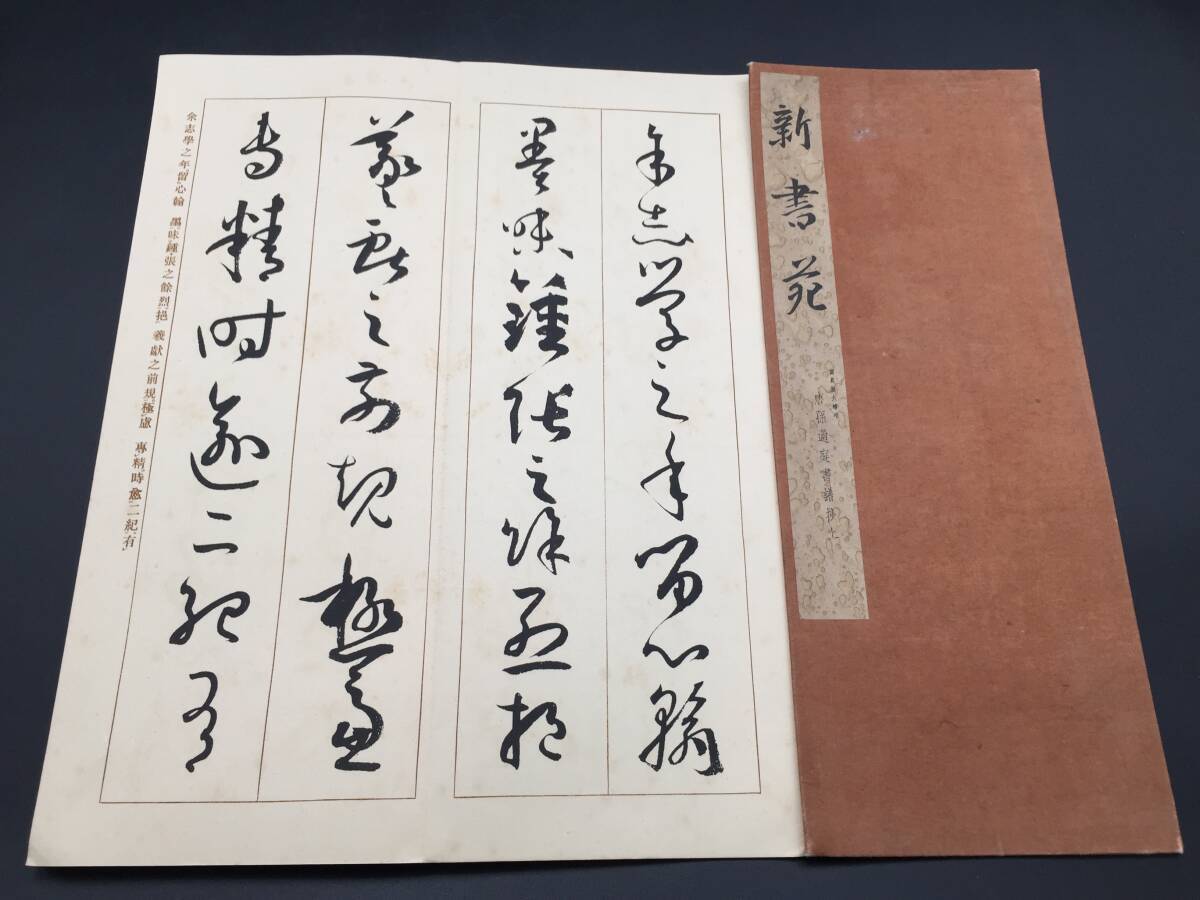 新書苑
唐孫過庭書譜抄七
余志學之年留心翰
墨味鍾張之餘烈挹
羲獻之前規極慮
專精時逾二紀有
余志學之年留心翰 墨味鍾張之餘烈挹 羲獻之前規極慮 專精時逾二紀有